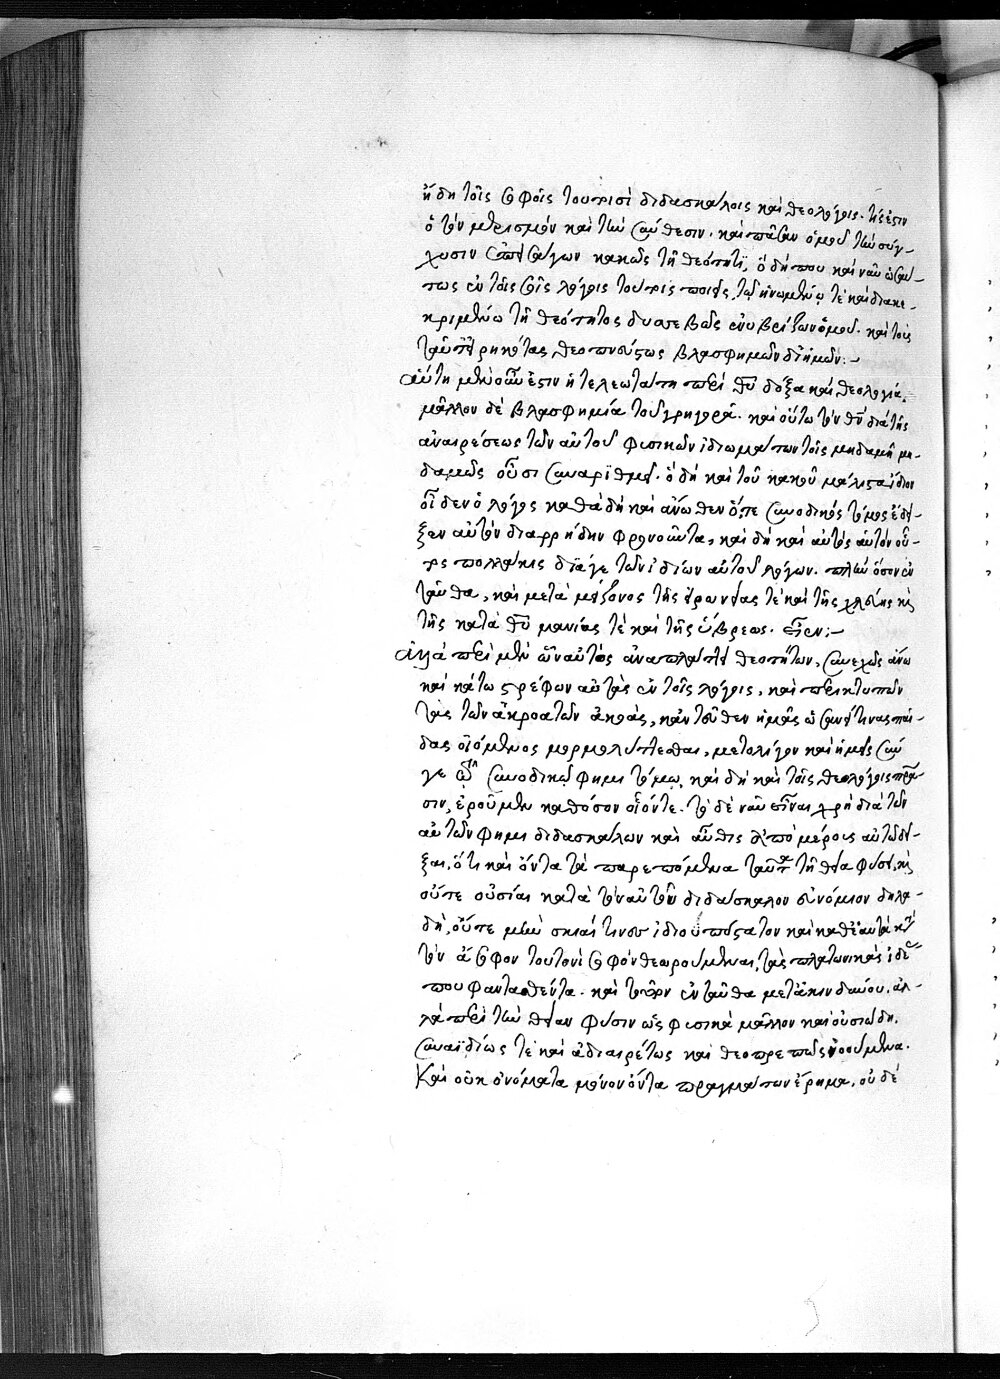 ἤδη τοῖς σοφοῖς τουτοισὶ διδασκάλοις καὶ θεολόγοις. τίς ἐστιν
ὁ τὸν μερισμὸν καὶ τὴν σύνθεσιν. καὶ πᾶσαν ὁμοῦ τὴν σύγ-
χυσιν ἐπεισάγων κακῶς τῇ θεότητι, ὁ δήπου καὶ νῦν ὡσαύ-
τως ἐν τοῖς σοῖς λόγοις τούτοις ποιεῖς, τῷ ἡνωμένῳ τὲ καὶ διακε-
κριμένῳ τῆς θεότητος δυσσεβῶς ἐνυβρίζων ὁμοῦ. καὶ τοὺς
ταῦτ' εἰρηκότας θεοπνεύστως βλασφημῶν δι' ἡμῶν:-
αὕτη μὲν οὖν ἐστιν ἡ τελεωτάτη περὶ θεοῦ δόξα καὶ θεολογία,
μᾶλλον δὲ βλασφημία τοῦ γρηγορᾶ. καὶ οὕτω τὸν θεὸν διὰ τῆς
ἀναιρέσεως τῶν αὐτοῦ φυσικῶν ἰδιωμάτων τοῖς μηδαμῆ μη-
δαμῶς οὖσι συναριθμεῖ. ὃ δὴ καὶ τοῦ κακοῦ μάλιστα ἴδιον
οἶδεν ὁ λόγος καθὰ δὴ καὶ ἄνωθεν ὅ,τε συνοδικὸς τόμος ἔδει-
ξεν αὐτὸν διαρρήδην φρονοῦντα, καὶ δὴ καὶ αὐτὸς αὑτὸν οὗ-
τος πολλάκις διά γε τῶν ἰδίων αὐτοῦ λόγων. πλὴν ὅσον ἐν
ταῦθα, καὶ μετὰ μείζονος τῆς εἰρωνείας τὲ καὶ τῆς χλεύης καὶ
τῆς κατὰ θεοῦ μανίας τὲ καὶ τῆς ὕβρεως. εἶεν:-
ἀλλὰ περὶ μὲν ὧν αὐτὸς ἀναπλάττει θεοτήτων, συνεχῶς ἄνω
καὶ κάτω στρέφων αὐτὰς ἐν τοῖς λόγοις, καὶ περικτυπῶν
τὰς τῶν ἀκροατῶν ἀκοὰς, κἀντεῦθεν ἡμᾶς ὡσανεί τινας παῖ-
δας οἰόμενος μορμολύττεσθαι, μετολίγον καὶ ἡμεῖς σύν
γε συνοδικῷ φημι τόμῳ, καὶ δὴ καὶ τοῖς θεολόγοις πᾶ-
σιν, ἐροῦμεν καθόσον οἷόντε. τὸ δὲ νῦν εἶναι χρὴ διὰ τῶν
αὐτῶν φημι διδασκάλων καὶ αὖθις ἀπὸ μέρους αὐτῷ δεῖ-
ξαι, ὅτι καὶ ὄντα τὰ παρεπόμενα ταῦτα τῇ θείᾳ φύσει, καὶ
οὔτε οὐσίαι κατὰ τὸν αὐτὸν διδάσκαλον εὐνόμιον δηλα-
δὴ, οὔτε μὴν σκιαί τινες ἰδιουπόστατοι καὶ καθ' ἑαυτὰ κατὰ
τὸν ἄσοφον τουτονὶ σοφὸν θεωρούμεναι, τὰς πλατωνικὰς ἰδέας
που φαντασθέντα. καὶ ἐνταῦθα μετ' ἀκινδύνου. ἀλ-
λὰ περὶ τὴν θείαν φύσιν ὡς φυσικὰ μᾶλλον καὶ οὐσιώδη.
συναϊδίως τὲ καὶ ἀδιαιρέτως καὶ θεοπρεπῶς νοούμενα.
Καὶ οὐκ ὀνόματα μόνον ὄντα πραγμάτων ἔρημα. οὐδὲ